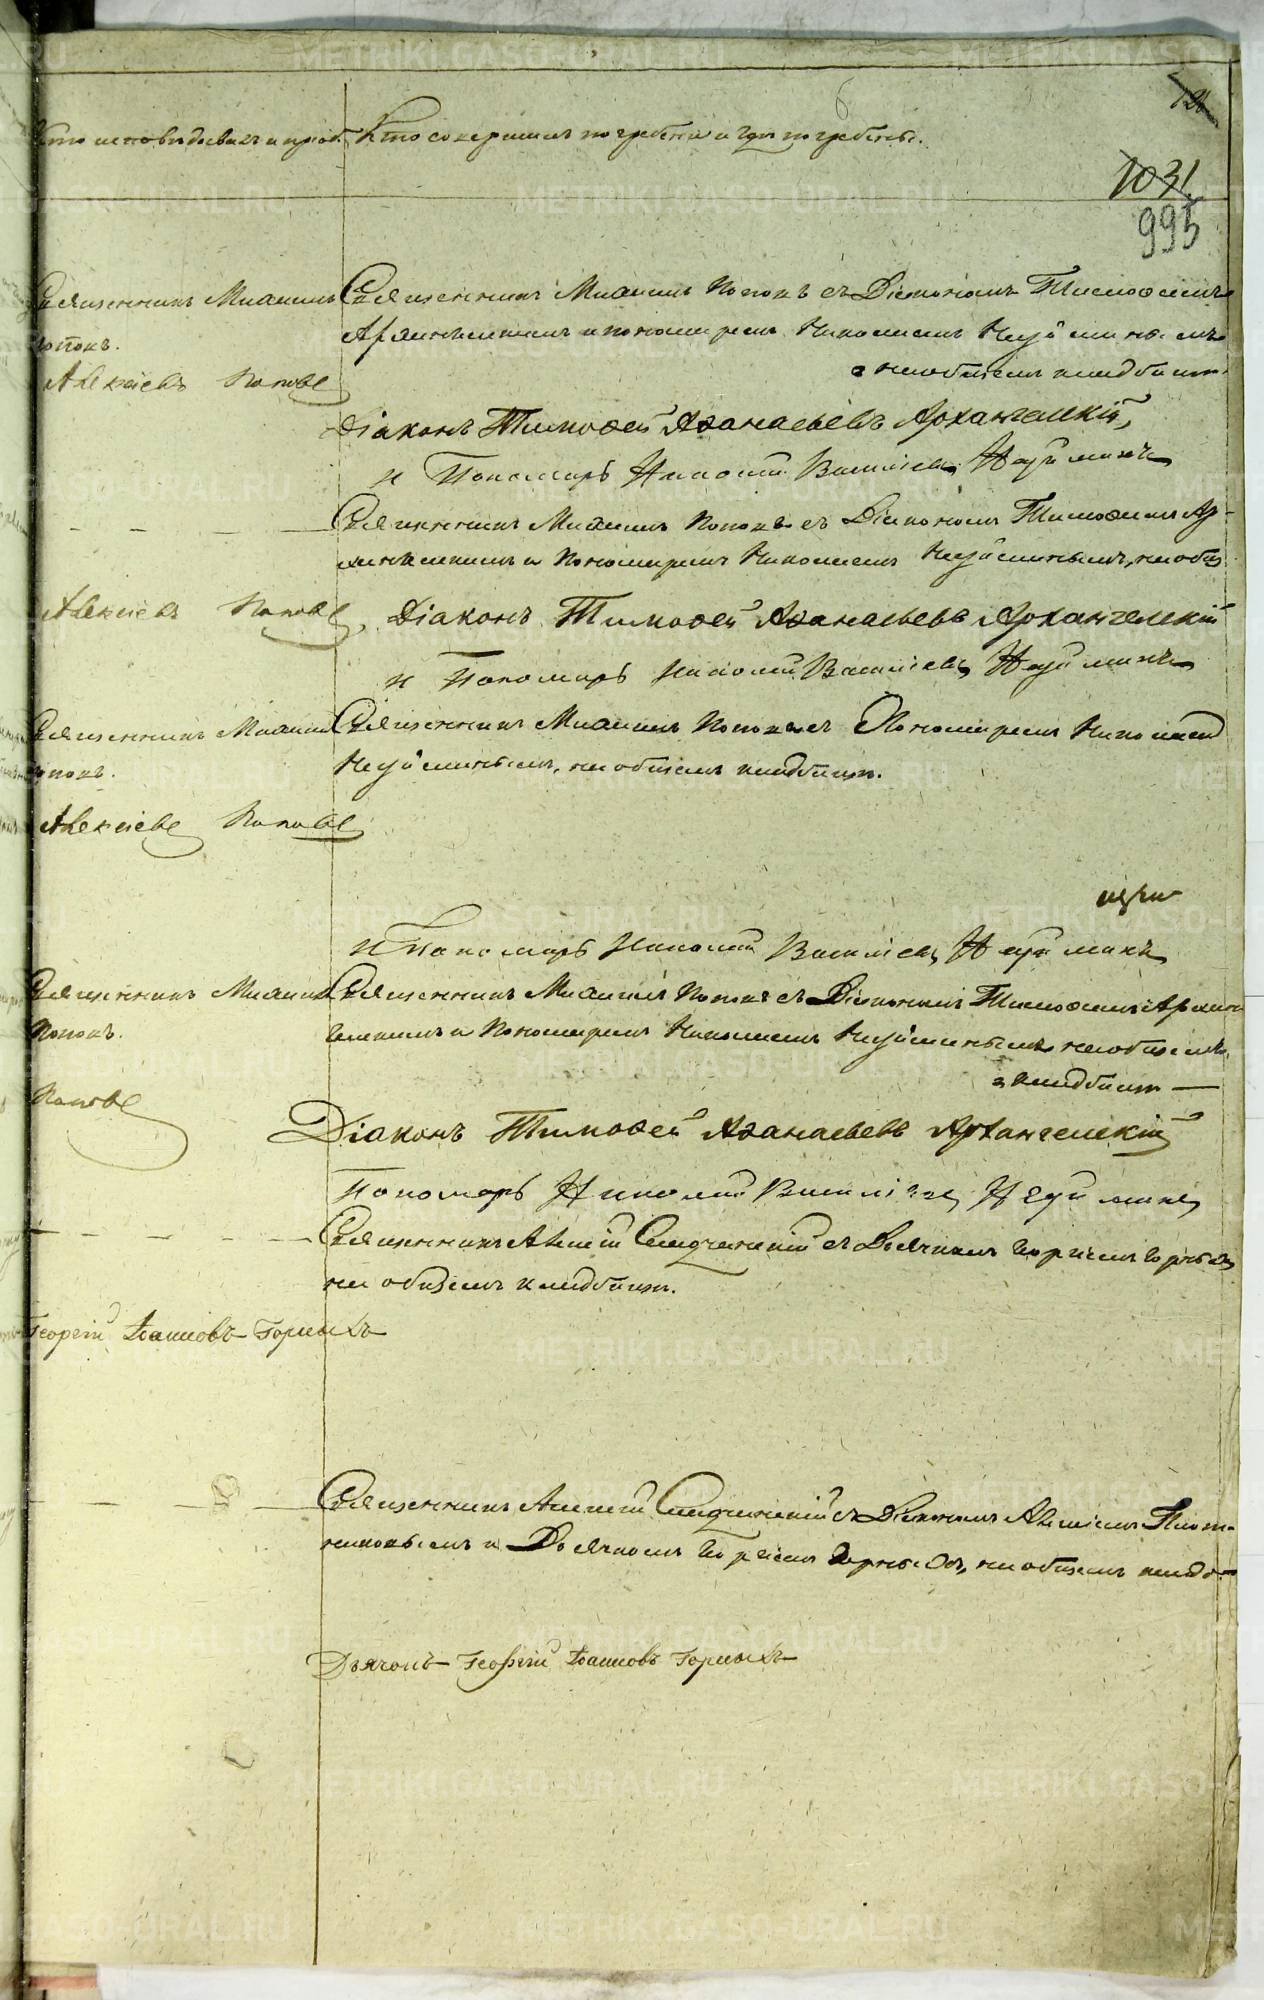 Кто исповѣдовалъ и приоб. Кто совершилъ погребенiе и гдѣ погребены.
1031
995
Священникъ Михаилъ
Поповъ.
Алексѣевъ Поповъ
Священникъ Михаилъ Поповъ съ Дiакономъ Тимофеемъ
Архангельскимъ и пономаремъ Николаемъ Неуйминымъ
на общемъ кладбищѣ.
Дiаконъ Тимофей Афанасьевъ Архангелскiй,
и Пономарь Николай Василiевъ Неуйминъ
Священникъ Михаилъ Поповъ съ Дiакономъ Тимофеемъ Ар-
хангельскимъ и Пономаремъ Николаемъ Неуйминымъ, на общ
Алексѣевъ Поповъ
Дiаконъ Тимофей Афанасьевъ Архангелскiй
и Пономарь Николай Василiевъ Неуйминъ
Священникъ Михаилъ
Поповъ.
Алексѣевъ Поповъ
Священникъ Михаилъ Поповъ съ Пономаремъ Николаемъ
Неуйминымъ, на общемъ кладбищѣ.
и Пономарь Николай Василiевъ Неуйминъ
Священникъ Михаилъ
Поповъ.
Поповъ
Священникъ Михаилъ Поповъ съ Дiакономъ Тимофеемъ Архан
гельскимъ и Пономаремъ Николаемъ Неуйминымъ на общемъ
кладбищѣ
Дiаконъ Тимофей Афанасьевъ Архангелскiй
Пономарь Николай Василiевъ Неуйминъ
Священникъ съ Дьячкомъ
на общемъ кладбищѣ.
Георгiй Iоанновъ Горныхъ
Священникъ съ Дiакономъ
и Дьячкомъ на общемъ кладб-
Дьячокъ Георгiй Iоанновъ Горныхъ
METRIKI.GASO-URAL.RU